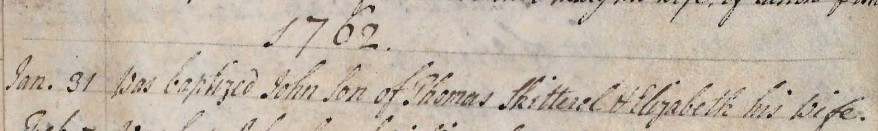 his wife, of
1762.
Jan. 31 Was baptized John Son of Thomas Skitterel & Elizabeth his Wife.